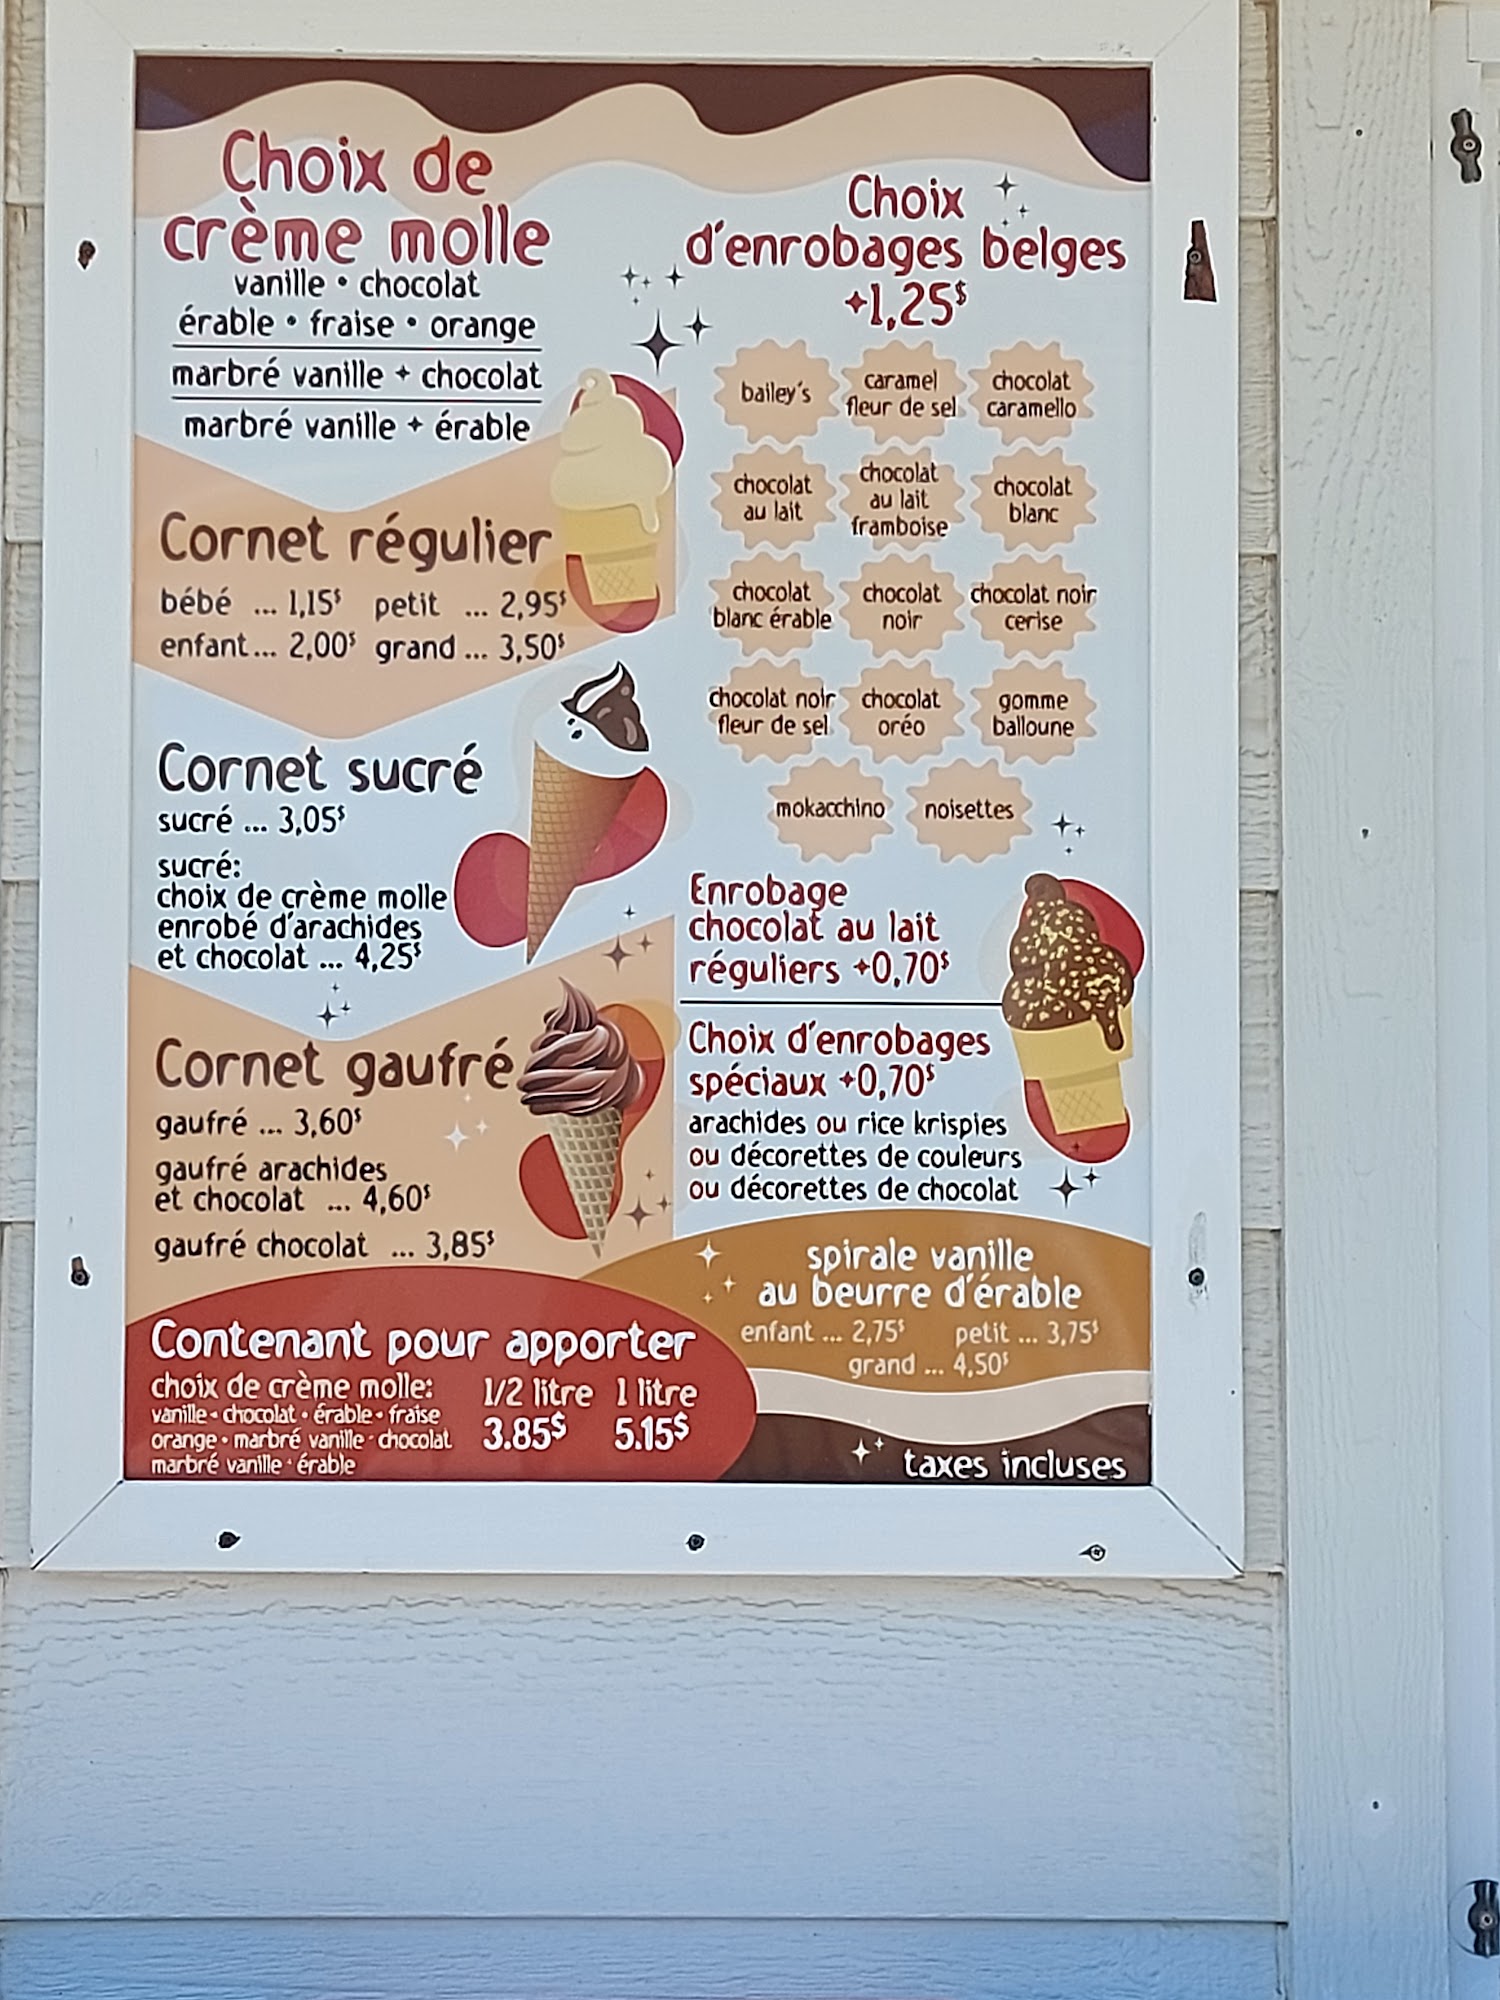 Choix de
crème molle
vanille • chocolat
érable • fraise • orange
marbré vanille + chocolat
marbré vanille + érable
Cornet régulier
bébé ... 1,15$ petit ... 2,95$
enfant... 2,00$ grand ... 3,50$
Cornet sucré
sucré ... 3,05$
sucré:
choix de crème molle
enrobé d'arachides
et chocolat ... 4,25$
Cornet gaufré
gaufré ... 3,60$
gaufré arachides
et chocolat ... 4,60$
gaufré chocolat ... 3,85$
Contenant pour apporter
choix de crème molle: 1/2 litre 1 litre
vanille • chocolat • érable • fraise
orange • marbré vanille • chocolat 3.85$ 5.15$
marbré vanille + érable
Choix
d'enrobages belges
+1,25$
bailey's
caramel
fleur de sel
chocolat
caramello
chocolat
au lait
chocolat
au lait
framboise
chocolat
blanc
chocolat
blanc érable
chocolat
noir
chocolat noir
cerise
chocolat noir
fleur de sel
chocolat
oréo
gomme
balloune
mokacchino
noisettes
Enrobage
chocolat au lait
réguliers +0,70$
Choix d'enrobages
spéciaux +0,70$
arachides ou rice krispies
ou décorettes de couleurs
ou décorettes de chocolat
spirale vanille
au beurre d'érable
enfant ... 2,75$ petit ... 3,75$
grand ... 4,50$
taxes incluses